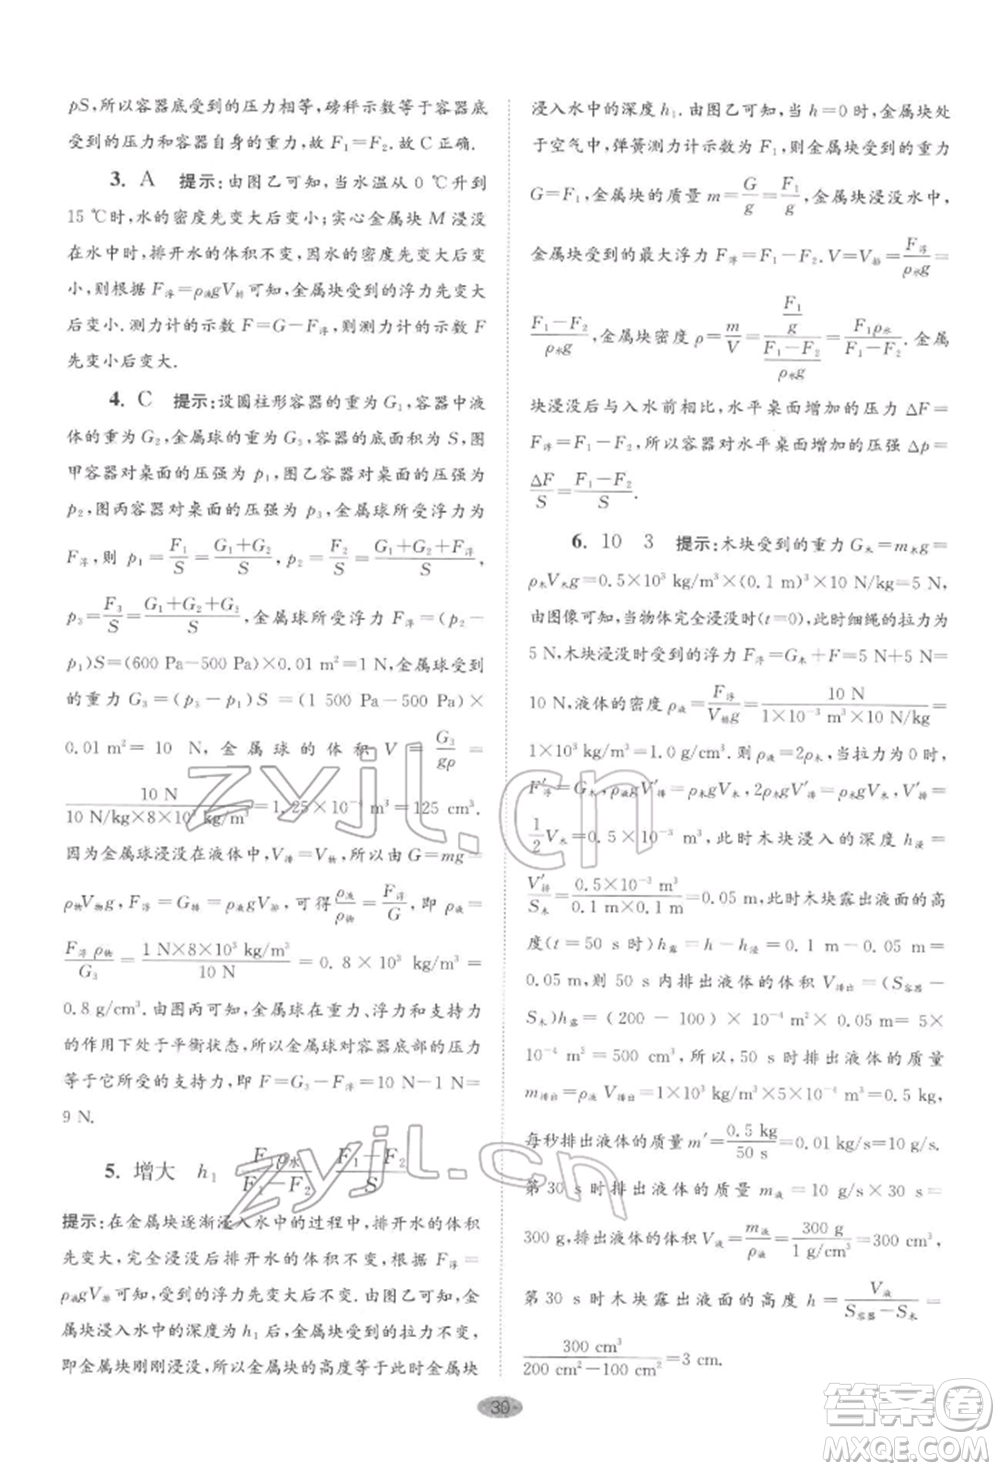 pS,所以容器底受到的压力相等,磅秤示数等于容器底
受到的压力和容器自身的重力,故 F₁=F₂.故 C 正确.
3. A 提示:由图乙可知,当水温从 0 ℃升到
15 ℃时,水的密度先变大后变小;实心金属块 M 浸没
在水中时,排开水的体积不变,因水的密度先变大后变
小,则根据 F浮=ρ液gV排可知,金属块受到的浮力先变大
后变小.测力计的示数 F=G-F浮,则测力计的示数 F
先变小后变大.
4. C 提示:设圆柱形容器的重为 G₁,容器中液
体的重为 G₂,金属球的重为 G₃,容器的底面积为 S,图
甲容器对桌面的压强为 p₁,图乙容器对桌面的压强为
p₂,图丙容器对桌面的压强为 p₃,金属球所受浮力为
F浮,则 p₁=F₁/S=(G₁+G₂)/S,p₂=F₂/S=(G₁+G₂+F浮)/S,
p₃=F₃/S=(G₁+G₂+G₃)/S,金属球所受浮力 F浮=(p₂-
p₁)S=(600 Pa-500 Pa)×0.01 m²=1 N,金属球受到
的重力 G₃=(p₃-p₁)S=(1 500 Pa-500 Pa)×
0.01 m²=10 N,金属球的体积 V=G₃/gρ=
10 N/(10 N/kg×8×10³ kg/m³)=1.25×10⁻⁴ m³=125 cm³.
因为金属球浸没在液体中,V排=V物,所以由 G=mg=
ρ物V物g,F浮=G排=ρ液gV排,可得ρ液/ρ物=F浮/G,即 ρ液=
F浮ρ物/G₃=(1 N×8×10³ kg/m³)/10 N=0.8×10³ kg/m³=
0.8 g/cm³.由图丙可知,金属球在重力、浮力和支持力
的作用下处于平衡状态,所以金属球对容器底部的压力
等于它所受的支持力,即 F=G₃-F浮=10 N-1 N=
9 N.
5. 增大 h₁ F₁ρ水/(F₁-F₂) (F₁-F₂)/S
提示:在金属块逐渐浸入水中的过程中,排开水的体积
先变大,完全浸没后排开水的体积不变,根据 F浮=
ρ液gV排可知,受到的浮力先变大后不变.由图乙可知,金
属块浸入水中的深度为 h₁后,金属块受到的拉力不变,
即金属块刚刚浸没,所以金属块的高度等于此时金属块
浸入水中的深度 h₁.由图乙可知,当 h=0 时,金属块处
于空气中,弹簧测力计示数为 F₁,则金属块受到的重力
G=F₁,金属块的质量 m=G/g=F₁/g,金属块浸没水中,
金属块受到的最大浮力 F浮=F₁-F₂.V=V排=F浮/ρ水g=
(F₁-F₂)/ρ水g,金属块密度 ρ=m/V=(F₁/g)/((F₁-F₂)/ρ水g)=F₁ρ水/(F₁-F₂).金属
块浸没后与入水前相比,水平桌面增加的压力 ΔF=
F浮=F₁-F₂,所以容器对水平桌面增加的压强 Δp=
ΔF/S=(F₁-F₂)/S.
6. 10 3 提示:木块受到的重力 G木=m木g=
ρ木V木g=0.5×10³ kg/m³×(0.1 m)³×10 N/kg=5 N,
由图像可知,当物体完全浸没时(t=0),此时细绳的拉力为
5 N,木块受到的浮力 F浮=G木+F=5 N+5 N=
10 N,液体的密度 ρ液=F浮/V排g=10 N/(1×10⁻³ m³×10 N/kg)=
1×10³ kg/m³=1.0 g/cm³.则 ρ液=2ρ木,当拉力为 0 时,
F′浮=G木,ρ液gV′排=ρ木gV木,2ρ木gV′排=ρ木gV木,V′排=
1/2V木=0.5×10⁻³ m³,此时木块浸入的深度 h浸=
V′排/S木=0.5×10⁻³ m³/(0.1 m×0.1 m)=0.05 m,此时木块露出液面的高
度(t=50 s 时)h露=h-h浸=0.1 m-0.05 m=
0.05 m,则 50 s 内排出液体的体积 V排出=(S容器-
S木)h露=(200-100)×10⁻⁴ m²×0.05 m=5×
10⁻⁴ m³=500 cm³.所以,50 s 时排出液体的质量
m排出=ρ液V排出=1×10³ kg/m³×5×10⁻⁴ m³=0.5 kg,
每秒排出液体的质量 m′=0.5 kg/50 s=0.01 kg/s=10 g/s,
第 30 s 时排出液体的质量 m液=10 g/s×30 s=
300 g,排出液体的体积 V液=m液/ρ液=300 g/(1 g/cm³)=300 cm³,
第 30 s 时木块露出液面的高度 h=V液/(S容器-S木)=
300 cm³/(200 cm²-100 cm²)=3 cm.
30
zyjl.cn
zyjl.cn
答案圈
MXQE.COM